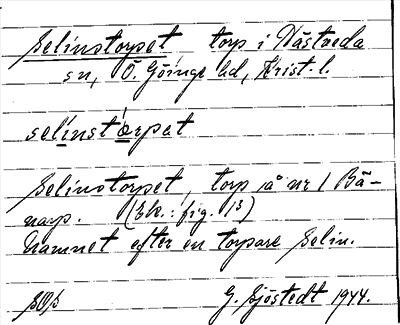 Selinstorpet torp i Västveda
sn, Ö. Göinge hd, Krist. l.
selinstårpet
Selinstorpet, torp å nr 1 Bä-
narp. (Ek.: fig. 13)
Namnet efter en torpare Selin.
G. Sjöstedt 1944.